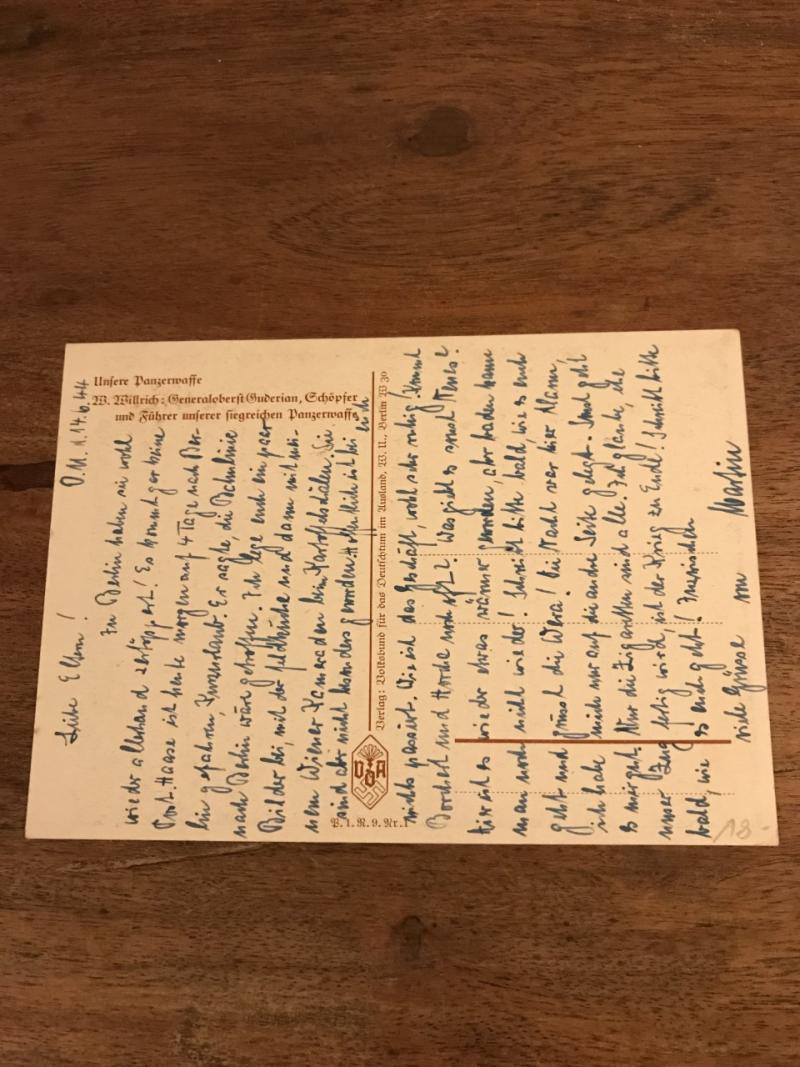 Unsere Panzerwaffe
W. Willrich: Generaloberst Guderian, Schöpfer
und Führer unserer siegreichen Panzerwaffe
O.M. d. 14.6.44
Liebe Eltern!
In Berlin haben sie wohl
wieder allerhand zertöppert! Es kommt gar keine
Post. Haase ist heute morgen auf 4 Tage nach Ber-
lin gefahren, Kurzurlaub. Er sagte, die Bahnlinie
nach Berlin wäre getroffen. Ich lege euch ein paar
Bilder bei, mit der Feldküche und dann mit mei-
nem Wiener Kameraden beim Kartoffelschälen. Sie
sind aber nicht besonders geworden. Hoffentlich ist bei euch
nichts passiert. Wie ist das Geschäft, wohl sehr ruhig? Kommt
Borchert und noch oft? Was gibt es sonst Neues?
hier ist es wieder etwas wärmer geworden, aber baden kann
man noch nicht wieder! Schreibt bitte bald, wie es euch
geht und grüsst die Wera! Die Nacht war hier Alarm,
ich habe mich nur auf die andre Seite gelegt. Sonst geht
es mir gut. Nur die Zigaretten sind alle. Ich glaube, ehe
unser Zug fertig wird, ist der Krieg zu Ende! Schreibt bitte
bald, wie es euch geht! Inzwischen
viele Grüsse von Martin
Verlag: Volksbund für das Deutschtum im Ausland, W. U., Berlin W 30
VDA
P. 1. R. 9. Nr. 1
18.-